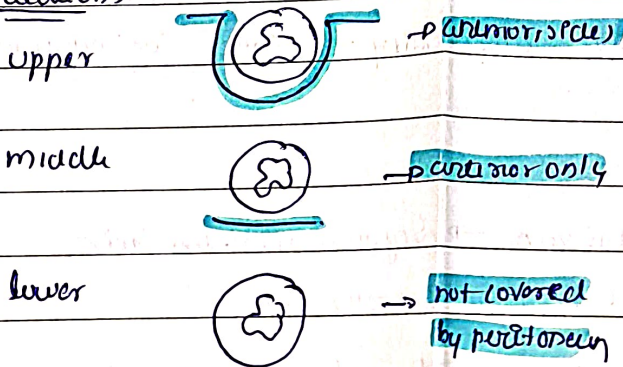 upper → anterior, sides
middle → anterior only
lower → not covered
by peritoneum